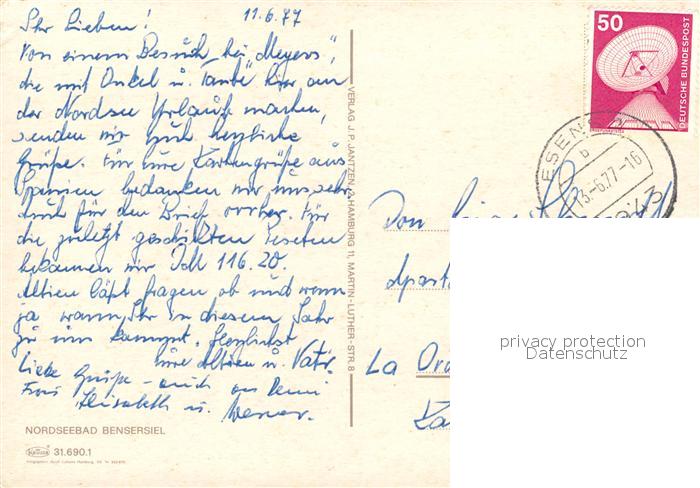 Ihr Lieben! 11.6.77
Von einem Besuch bei "Meyers",
die mit Onkel u. Tante hier an
der Nordsee Urlaub machen,
senden wir Euch herzliche
Grüße. Für Eure Kartengrüße aus
Spanien bedanken wir uns sehr
auch für den Brief vorher. Für
die zuletzt geschickten Peseten
bekamen wir DM 116.20.
läßt fragen ob und wenn
ja wann, Ihr in diesem Jahr
zu uns kommt. Herzlichst
Eure u. Vati.
Liebe Grüße - auch an
Frau Elisabeth u. Werner.
NORDSEEBAD BENSERSIEL
Krüger 31.690.1
VERLAG J. P. JANTZEN, 2 HAMBURG 11, MARTIN-LUTHER-STR. 8
50
DEUTSCHE BUNDESPOST
ESENS
b
13.-6.77-16
2943
Don
La
privacy protection
Datenschutz